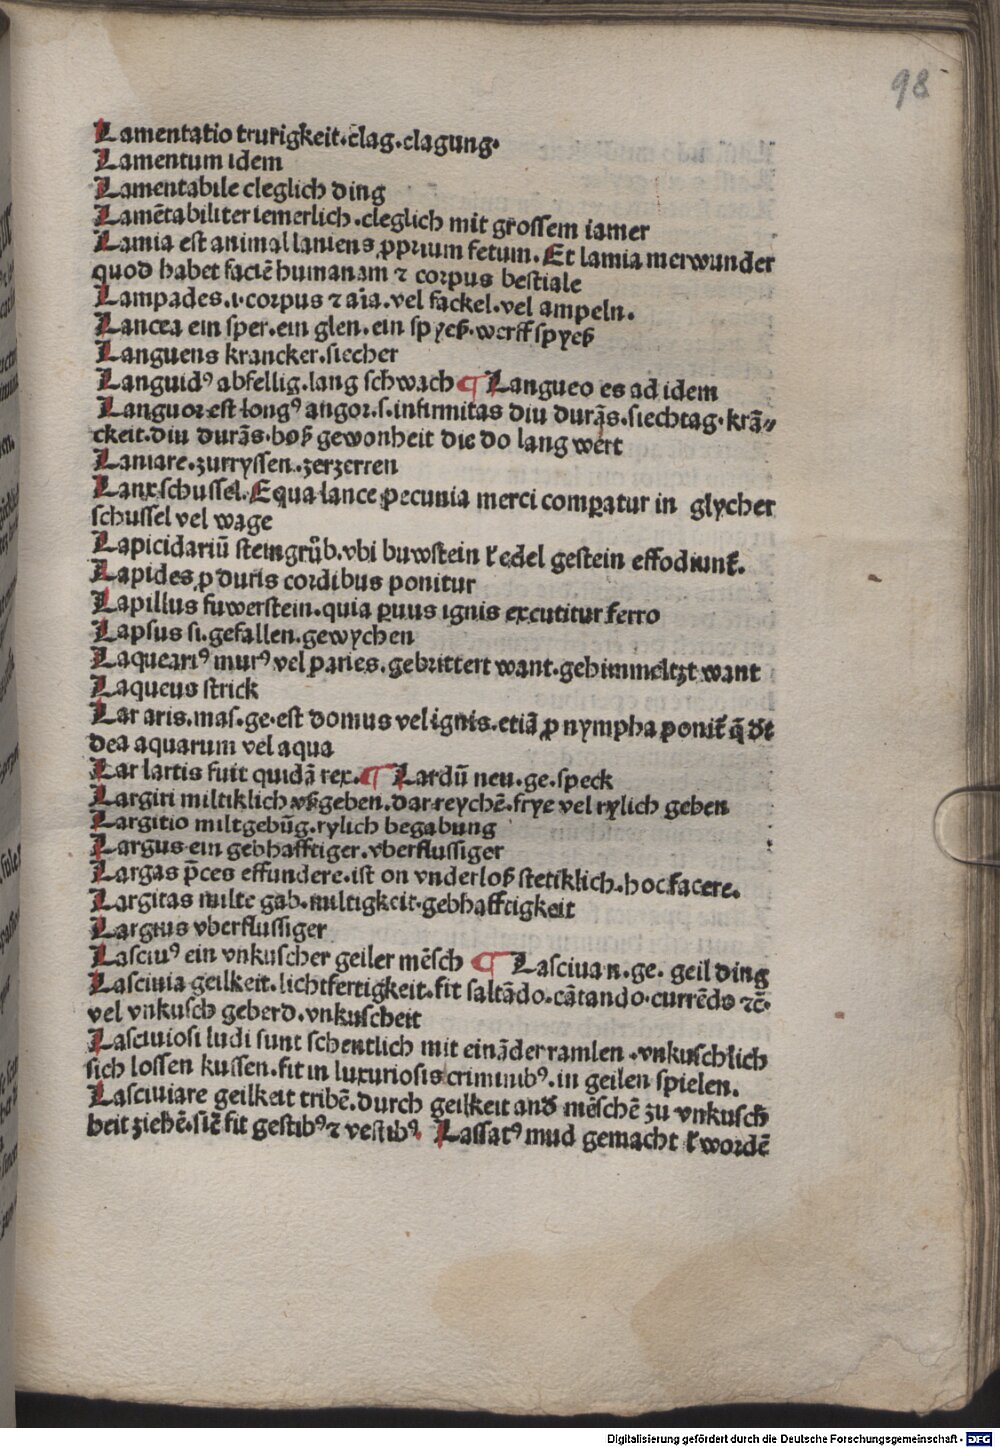 98
Lamentatio trurigkeit.clag.clagung.
Lamentum idem
Lamentabile cleglich ding
Lamētabiliter iemerlich.cleglich mit grossem iamer
Lamia est animal laniens ꝓprium fetum. Et lamia merwunder
quod habet faciē humanam ⁊ corpus bestiale
Lampades.i.corpus ⁊ aīa.vel fackel.vel ampeln.
Lancea ein sper.ein glen.ein spyeß.werffspyeß
Languens krancker.siecher
Languidꝰ abfellig.lang schwach ¶ Langueo es ad idem
Languor est longꝰ angor.s.infirmitas diu durās.siechtag.krā⸗
ckeit.diu durās.boß gewonheit die do lang wert
Laniare.zurryssen.zerzerren
Lanx schussel.Equa lance pecunia merci comꝑatur in glycher
schussel vel wage
Lapicidariū steingrůb.vbi buwstein ł edel gestein effodiunt̄.
Lapides ꝓ duris cordibus ponitur
Lapillus fuwerstein.quia ꝑuus ignis excutitur ferro
Lapsus si.gefallen.gewychen
Laqueariꝰ murꝰ vel paries.gebrittert want.gehimmeltzt want
Laqueus strick
Lar aris.mas.ge.est domus vel ignis.etiā ꝓ nympha ponit̄ q̄ dt
dea aquarum vel aqua
Lar lartis fuit quidā rex. ¶ Lardū neu.ge.speck
Largiri miltiklich vßgeben.dar reychē.frye vel rylich geben
Largitio miltgebūg.rylich begabung
Largus ein gebhafftiger.vberflussiger
Largas p̄ces effundere.ist on vnderloß stetiklich.hoc facere.
Largitas milte gab.miltigkeit.gebhafftigkeit
Largius vberflussiger
Lasciuꝰ ein vnkuscher geiler mēsch ¶ Lasciua n.ge. geil ding
Lasciuia geilkeit.lichtfertigkeit.fit saltādo.cātando.currēdo ⁊c̄.
vel vnkusch geberd.vnkuscheit
Lasciuiosi ludi sunt schentlich mit eināder ramlen.vnkuschlich
sich lossen kussen.fit in luxuriosis criminibꝰ.in geilen spielen.
Lasciuiare geilkeit tribē.durch geilkeit and̄ mēschē zu vnkusch
heit ziehē.siē fit gestibꝰ ⁊ vestibꝰ. Lassatꝰ mud gemacht ł wordē
Digitalisierung gefördert durch die Deutsche Forschungsgemeinschaft - DFG